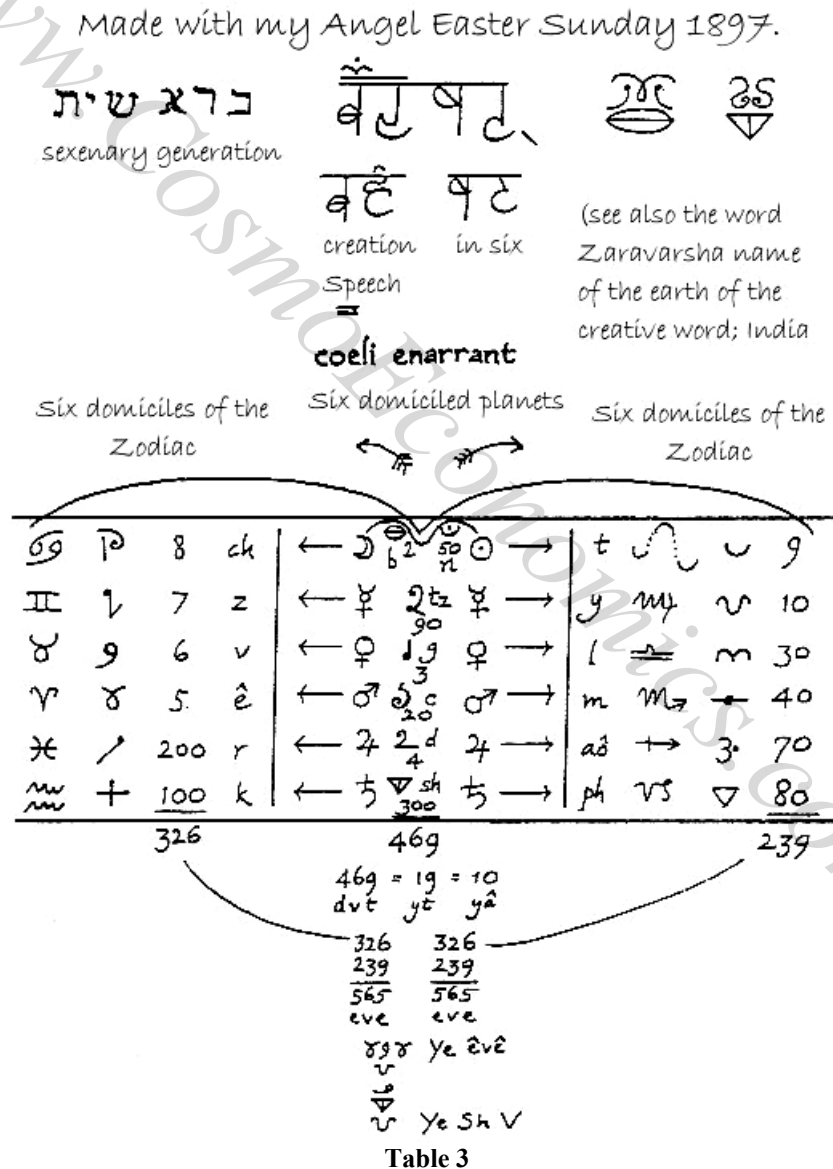 www.CosmoEconomics.com
Made with my Angel Easter Sunday 1897.
ברא שית
sexenary generation
creation in six
Speech
(see also the word
Zaravarsha name
of the earth of the
creative word; India
coeli enarrant
Six domiciles of the
Zodiac
Six domiciled planets
Six domiciles of the
Zodiac
♋ 8 ch ← ☽ b 2 50 n ☉ → t 9
♊ 7 z ← ☿ tz 90 ☿ → y ♍ 10
♉ 6 v ← ♀ g 3 ♀ → l ♎ 30
♈ 5 ê ← ♂ c 20 ♂ → m ♏ 40
♓ 200 r ← ♃ d 4 ♃ → aô 70
♒ 100 k ← ♄ sh 300 ♄ → ph ♑ 80
326 469 239
469 = 19 = 10
dvt yt yâ
326 326
239 239
565 565
eve eve
Ye êvê
Ye Sh V
Table 3